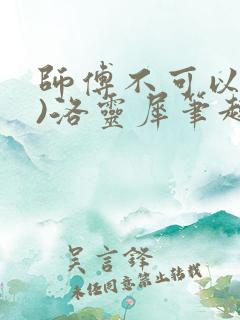 師傅不可以
)洛靈犀筆趣
吳言鋒
未任同意禁止转载